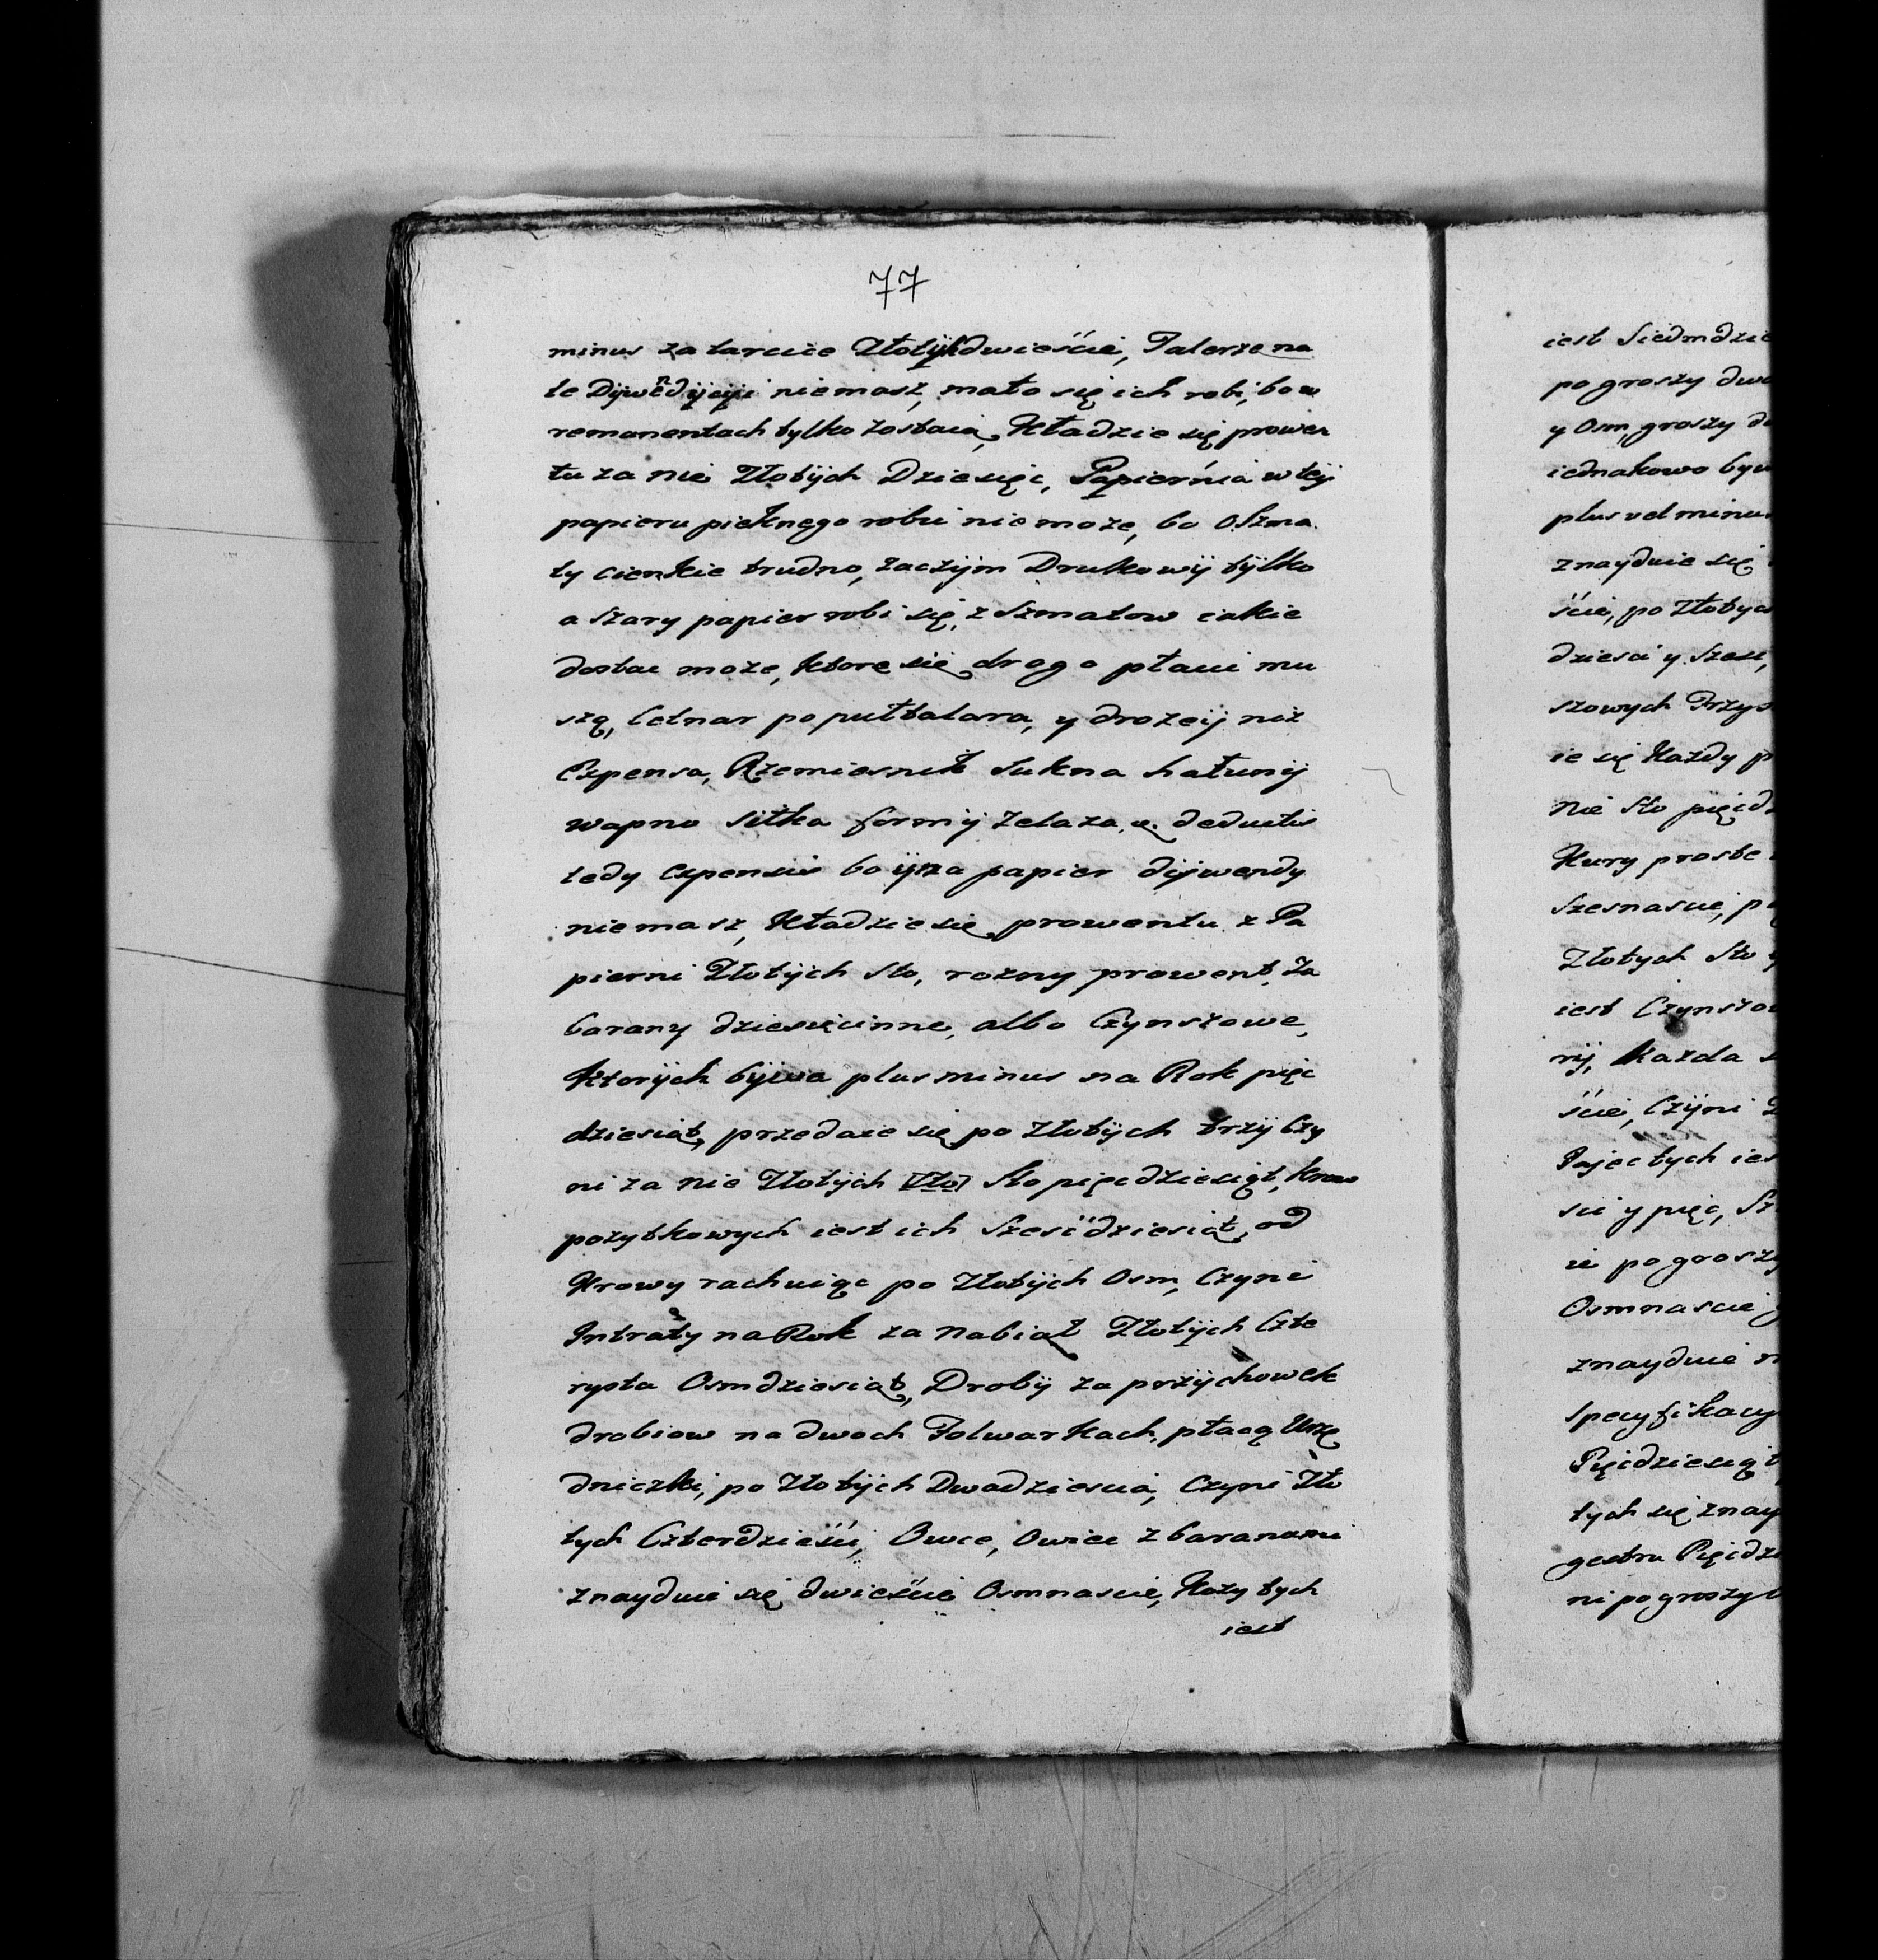 77
minus za tarcice Złotÿch dwieście, Talerze na
te Dÿwendÿcÿi niemasz, mało się ich robi, bo w
remanentach tylko zostaią, Kładzie się prowen
tu za nie Złotÿch Dziesięc, Papiernia w teÿ
papieru pięknego robić nie może, bo o Szma
ty cienkie trudno, zaczÿm Drukowÿ tÿlko
a Szary papier robi się, z Szmatow iakie
dostac może, ktore się drogo płacić mu
szą, Cetnar po pułtalara, y drożeiÿ niż
Expensa, Rzemiesnik Sukna hałunÿ
wapno Sitka formÿ żelaza, deductis
tedy expensis bo ÿ za papier dÿwendy
niemasz, Kładzie się prowentu z Pa
pierni Złotÿch Sto, rożny prowent, Za
barany dziesięcinne, albo Czynszowe,
Ktorÿch bÿwa plus minus na Rok pięc
dziesiąt, przedaie się po Złotÿch trzÿ Czy
ni za nie Złotÿch Sto pięcdziesiąt, Krow
pożytkowych iest ich Sześćdziesiąt, od
Krowy rachuiąc po Złotÿch Osm, Czyni
Intraty na Rok za Nabiał Złotÿch Czte
rysta Osmdziesiąt, Drobÿ za przÿchowek
drobiow na dwoch Folwarkach, płacą Urzę
dniczki, po Złotÿch Dwadziescia, Czyni Zło
tych Czterdzieści, Owce, Owiec z baranami
znayduie się dwieście Osmnascie, Kozy tych
iest
iest Siedmdzie
po groszy dwa
y Osm, groszy d
iednakowo byw
plus vel minus
znayduie się
ście, po Złotych
dziesci y Szesc,
szowych Przys
ie się Każdy p
Nie Sto pięcd
Kury proste
Szesnascie, p
Złotych Sto y
iest Czynszo
rÿ, Każda
ście, Czÿni
Jajec tych ies
sci y pięc, Sz
ie po groszy
Osmnascie
znayduie
Specyfikacy
Pięcdziesiąt
tych się znay
gestru Pięcdz
ni po groszy